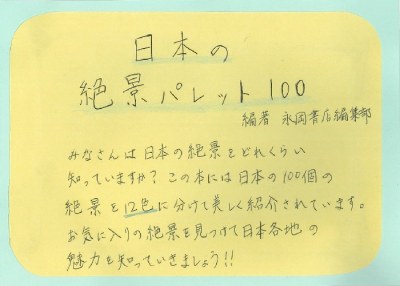 日本の
絶景パレット100
編著 永岡書店編集部
みなさんは日本の絶景をどれくらい
知っていますか？この本には日本の100個の
絶景を12色に分けて美しく紹介されています。
お気に入りの絶景を見つけて日本各地の
魅力を知っていきましょう!!